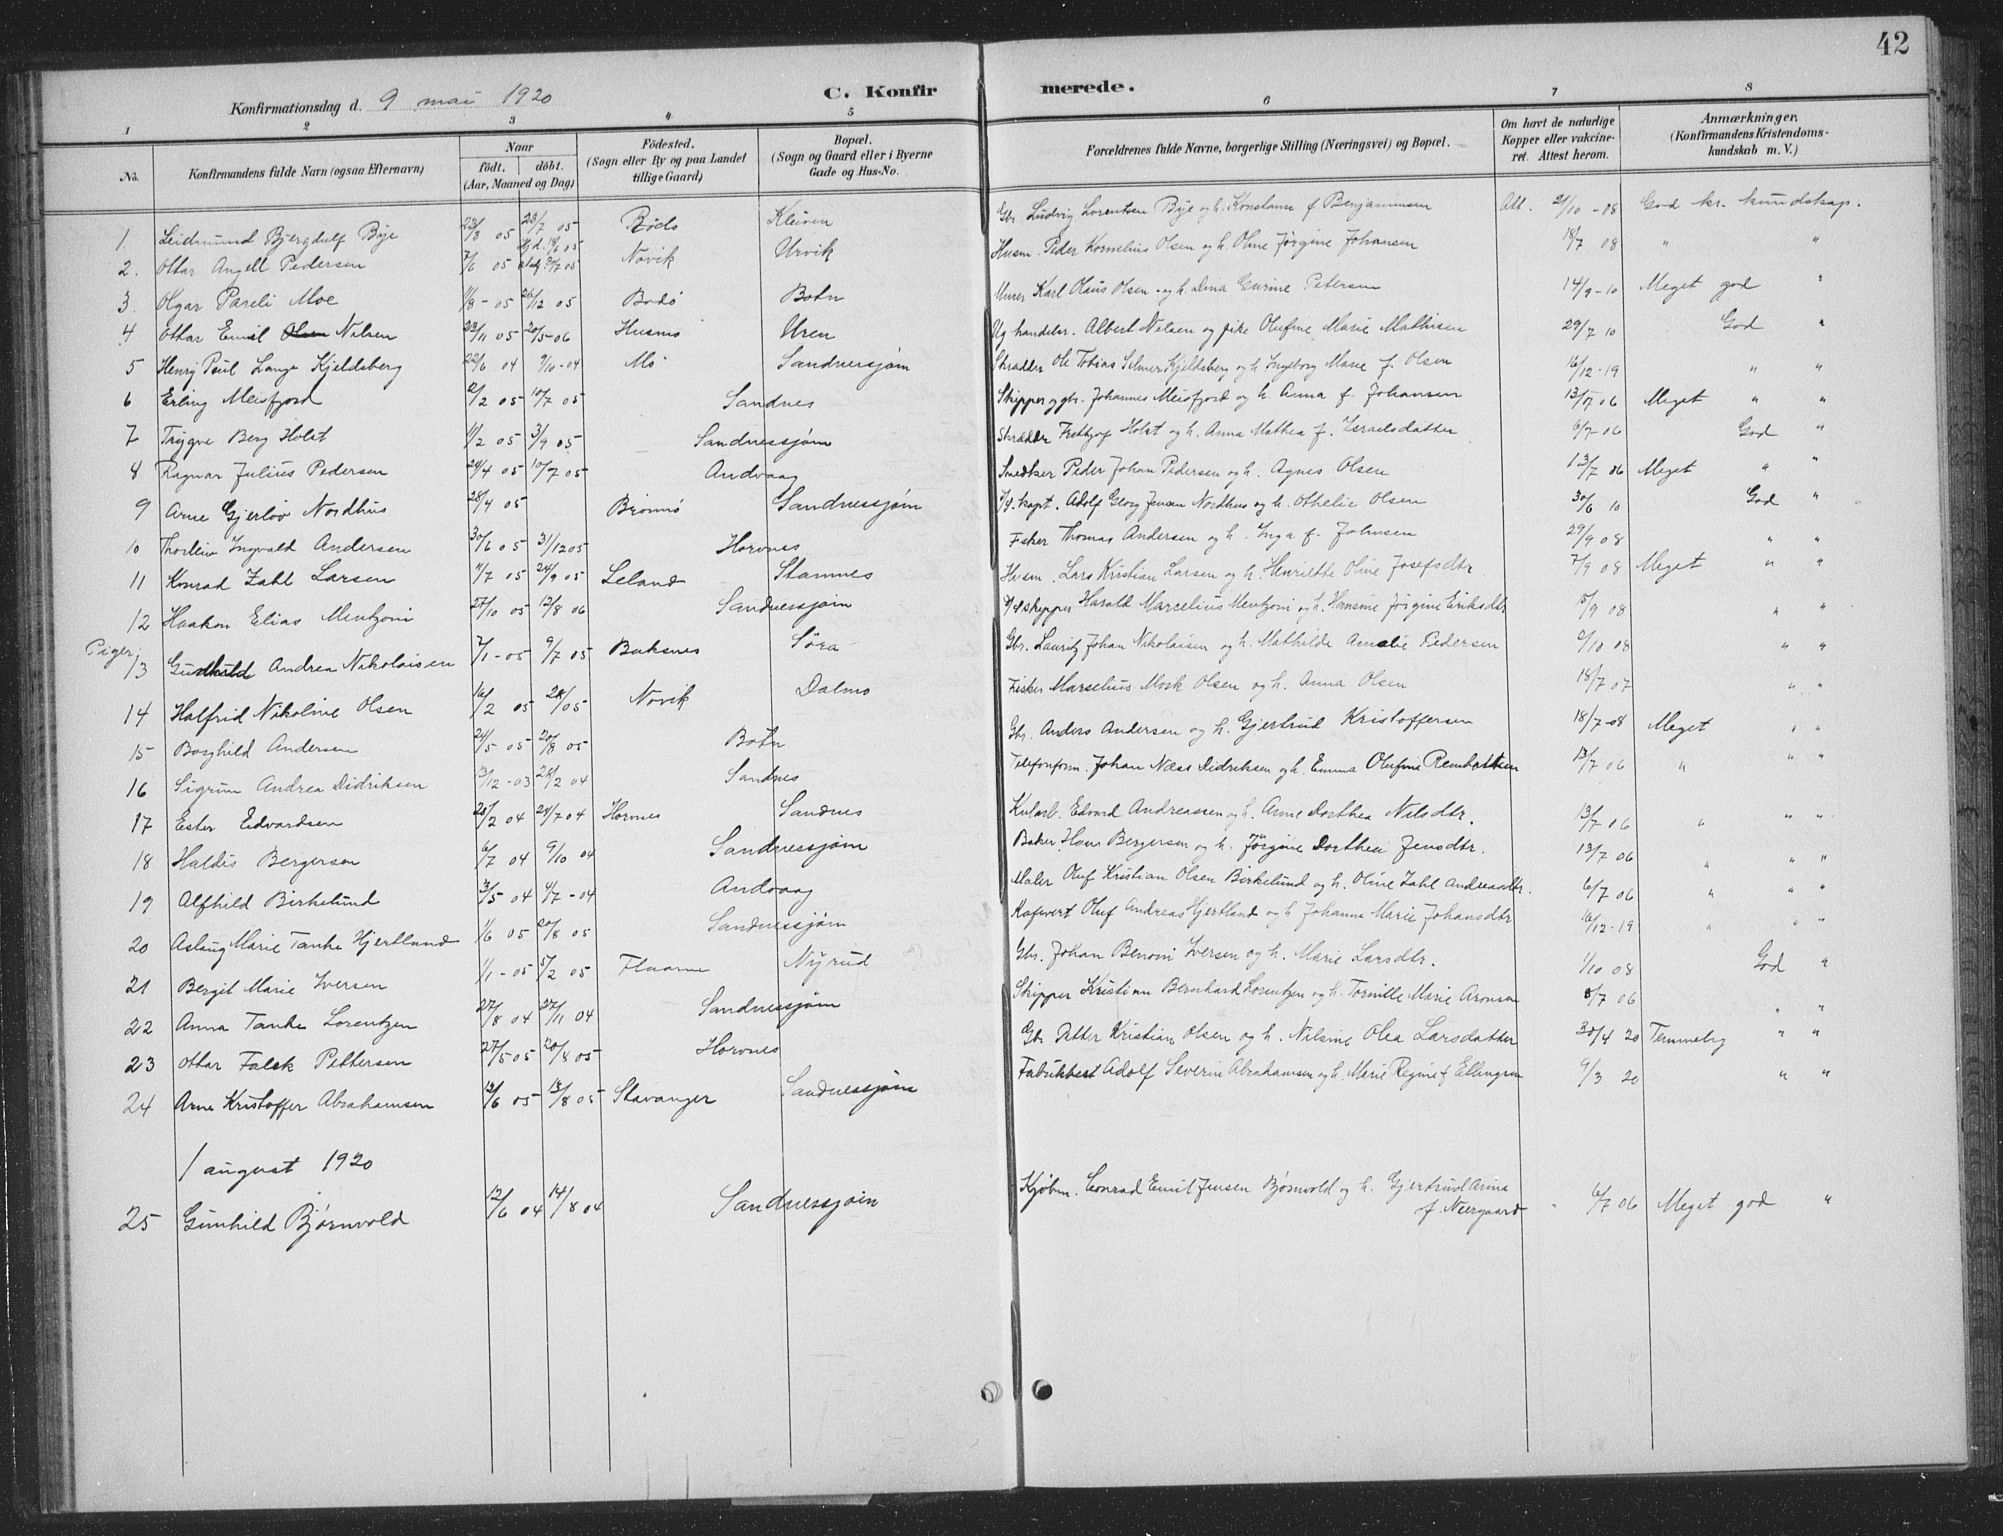 42
Konfirmationsdag d. 9 mai 1920
C. Konfirmerede.
1 2 3 4 5 6 7 8
No. Konfirmandens fulde Navn (ogsaa Efternavn) Naar födt. döbt. (Aar, Maaned og Dag) Födested. (Sogn eller By og paa Landet tillige Gaard) Bopæl. (Sogn og Gaard eller i Byerne Gade og Hus-No. Forældrenes fulde Navne, borgerlige Stilling (Næringsvei) og Bopæl. Om havt de naturlige Kopper eller vakcineret. Attest herom. Anmærkninger. (Konfirmandens Kristendomskundskab m. V.)
1. Leidmund Bjergdulf Bye 23/3 05 23/7 05 Bodö Kleiven Gbr. Ludvig Lorentzen Bye og h. Konstanse f Benjaminsen Att. 21/10 - 08 God kr. kundskap.
2. Ottar Angell Pedersen 7/6 05 Hjd. 18/6 05 Novik Urvik Husm. Peder Kornelius Olsen og h. Oline Jørgine Johansen 18/7 08 " "
3. Olgar Pareli Moe 11/8 - 05 26/12 05 Bodø Botn Murer Karl Olaus Olsen og h. Dina Gurine Petersen 14/9-10 Meget god "
4 Ottar Emil Nilsen 23/11 05 20/5 06 Husmo Uren Ug handelsr. Albert Nilsen og pike Olufine Marie Mathisen 29/7 10 God "
5 Henry Paul Lange Kjeldsberg 22/6 04 9/10-04 Mo Sandnessjøen Skrædder Ole Tobias Selmer Kjeldsberg og h. Ingeborg Marie f. Olsen 16/12-19 " "
6 Erling Meisfjord 12/2 05 10/7 05 Sandnes Skipper og gbr. Johannes Meisfjord og h. Anna f. Johansen 13/7 06 Meget " "
7 Trygve Berg Holst 11/2 05 3/9 05 Sandnessjøen Skrædder Fridtjof Holst og h. Anna Mathea f. Israelsdatter 6/7-06 God "
8 Ragnar Julius Pedersen 29/4 05 10/7 05 Andvaag Snedker Peder Johan Pedersen og h. Agnes Olsen 13/7 06 Meget " "
9 Arne Gjerløv Nordhus 28/4 05 Brönnö Sandnessjøen Adolf Georg Jensen Nordhus og h. Othelie Olsen 30/6 10 God "
10 Thorleiv Ingvald Andersen 30/6 05 31/12 05 Horvnes Fisker Thomas Andersen og h. Inga f. Johnsen 29/9 08 " "
11 Konrad Zahl Larsen 11/7 05 24/9 05 Leland Stamnes Husm. Lars Kristian Larsen og h. Henriette Oline Josefsdtr 7/9 08 Meget " "
12 Haakon Elias Mentzoni 27/10 05 12/8 06 Sandnessjøen Harald Marcelius Mentzoni og h. Hansine Jørgine Eriksdtr 15/9 08 " "
Piger
13 Gudhild Andrea Nikolaisen 7/1-05 9/7 05 Buksnes Søra Gbr. Lauritz Johan Nikolaisen og h. Mathilde Amalie Pedersen 9/10 08 " "
14 Halfrid Nikoline Olsen 16/2 05 Novik Dalmo Fisker Marselius Mosk Olsen og h. Anna Olsen 18/7 07 " "
15 Borghild Andersen 24/5 05 20/8 05 Botn Gbr. Anders Andersen og h. Gjertrud Kristoffersen 18/7-08 Meget " "
16 Sigrun Andrea Didriksen 13/12-03 28/2 04 Sandnes Telefonform. Johan Næss Didriksen og h. Emma Olufine 13/7 06 " " "
17 Ester Edvardsen 28/2 04 24/7 04 Horvnes Sandnes Kularb. Edvard Andreassen og h. Anne Dorthea Nilsdtr. 13/7 06 " " "
18 Haldis Bergersen 6/7 04 9/10 04 Sandnessjøen Baker Hans Bergersen og h. Jørgine Dorthea Jensdtr. 13/7 06 " " "
19 Alfhild Birkelund 3/5 04 4/7-04 Andvaag Maler Oluf Kristian Olsen Birkelund og h. Oline Zahl Andreasdtr. 6/7 06 " " "
20 Aslaug Marie Tanke Hjertland 1/6 05 20/8 05 Sandnessjøen Kafevert Oluf Andreas Hjertland og h Johanne Marie Johansdtr 16/12-19 " " "
21 Bergit Marie Iversen 1/1-05 5/2 05 Flaarne Nyrud Gbr. Johan Benoni Iversen og h. Marie Larsdtr. 1/10 08 God "
22 Anna Tanke Lorentzen 27/8 04 27/11 04 Sandnessjøen Skipper Kristian Bernhard Lorentzen og h. Tomille Marie Aronsen 8/7 06 " "
23 Ottar Falck Pettersen 27/5 05 20/8 05 Horvnes Gbr Petter Kristian Olsen og h. Nilsine Olea Larsdatter 30/4 20 Temmelig " "
24 Arne Kristoffer Abrahamsen 12/6 05 13/8 05 Stavanger Sandnessjøen Adolf Severin Abrahamsen og h. Marie Regine f Ellingsen 9/3 20 " "
1 august 1920
25 Gunhild Bjørnvold 12/6 04 14/8 04 Sandnessjøen Kjøbm. Conrad Emil Jensen Bjørnvold og h. Gjertrud Anna f. Neergaard 6/7 06 Meget god "